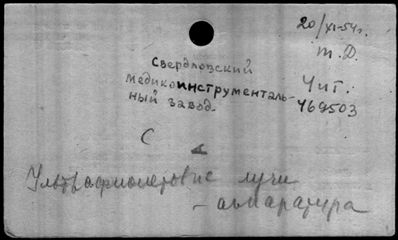 20/XI-54г.
Т.Д.
Свердловский
медикоинструменталь-
ный завод.
Чит.
469503
С
Ультрафиолетовые лучи
- аппаратура